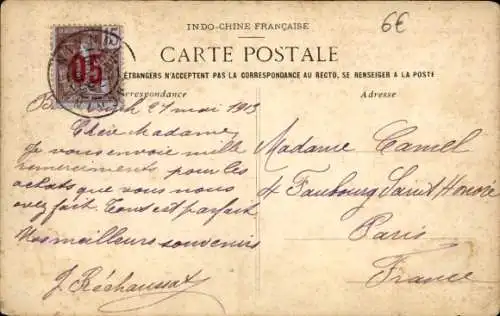 INDO-CHINE FRANÇAISE
6€
15
05
CARTE POSTALE
ÉTRANGERS N'ACCEPTENT PAS LA CORRESPONDANCE AU RECTO, SE RENSEIGNER A LA POSTE
Correspondance
Adresse
27 mai 1913
Chère Madame,
Je vous envoie mille
remerciments pour les
achats que vous nous
avez fait. Tout est parfait.
Nos meilleurs souvenirs
J. Réchaussat
Madame Camel
4 Faubourg Saint Honoré
Paris
France